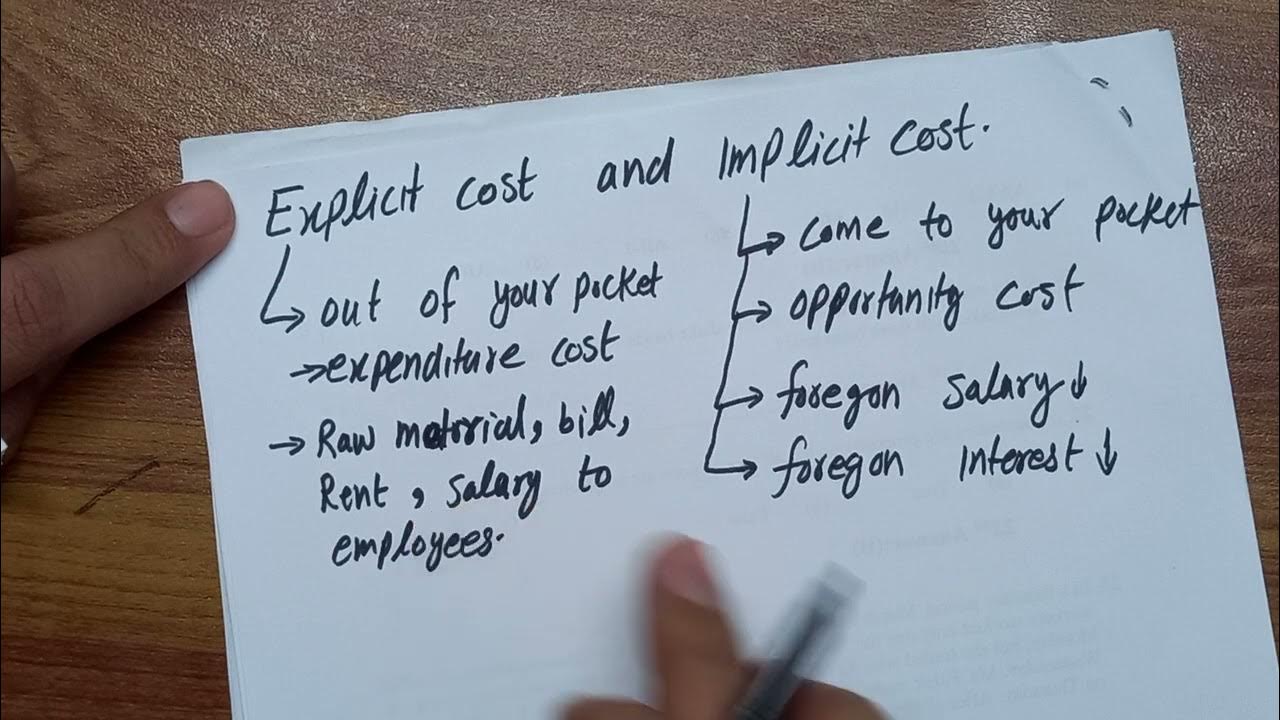 Explicit cost and Implicit cost.
→ out of your pocket
→ expenditure cost
→ Raw material, bill,
Rent, salary to
employees.
→ come to your pocket
→ opportunity cost
→ foregon salary ↓
→ foregon interest ↓